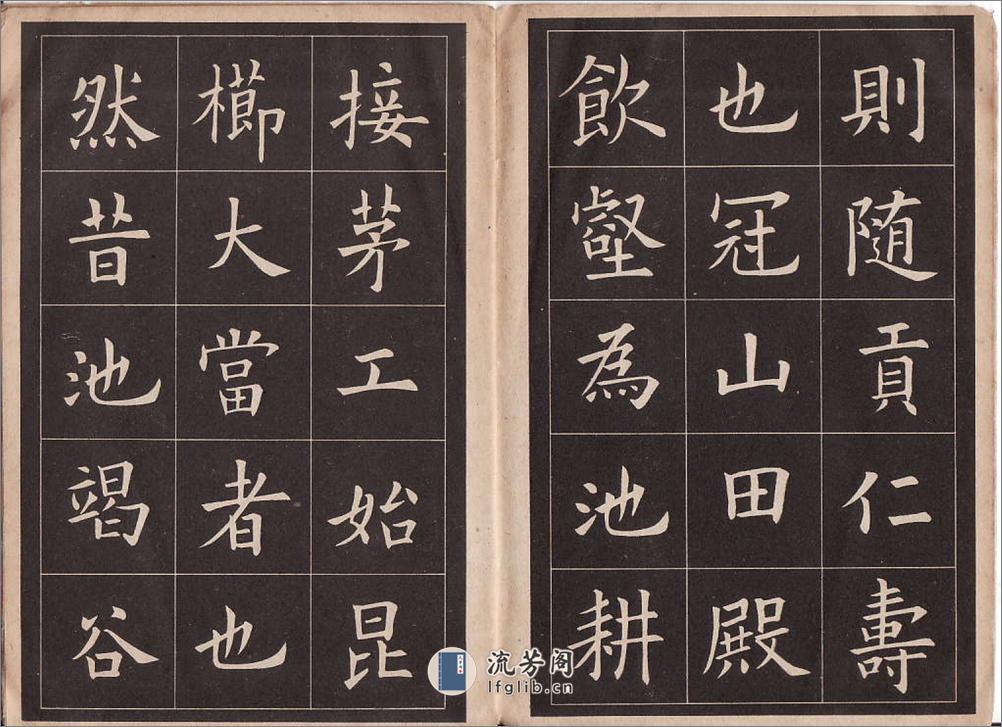 則隨貢仁壽
也冠山田殿
飲壑為池耕
接茅工始昆
櫛大當者也
然昔池竭谷
流芳阁
lfglib.cn